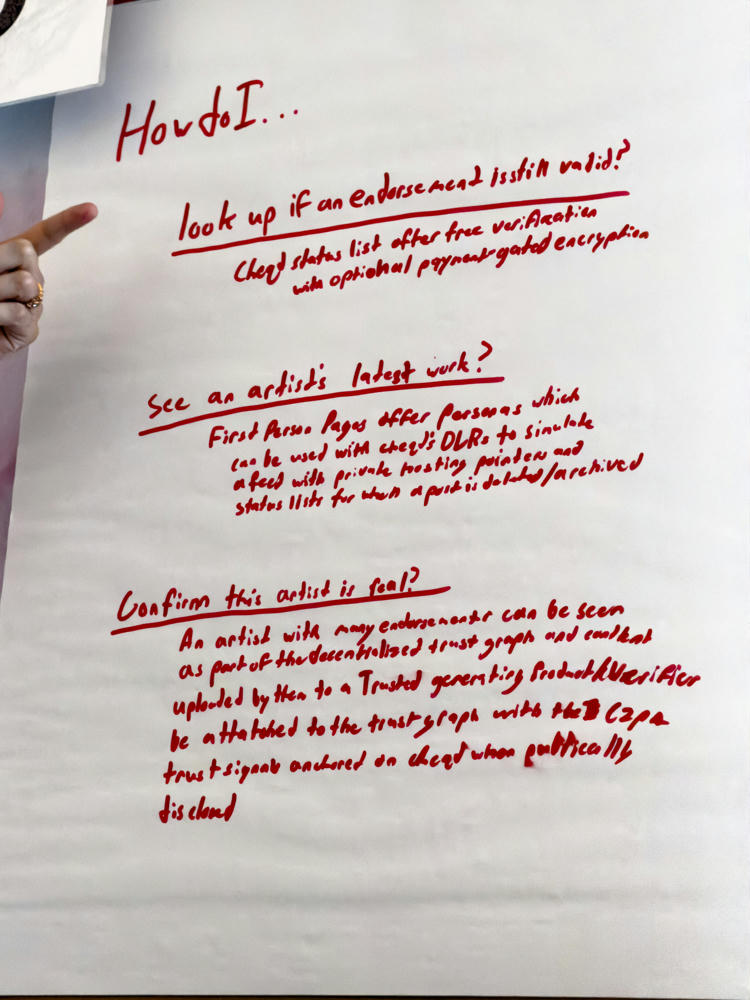 How do I...
look up if an endorsement is still valid?
Cheqd status list offer free verification
with optional payment gated encryption
See an artist's latest work?
First Person Pages offer Personas which
can be used with cheqd's DLRs to simulate
a feed with private hosting pointers and
status lists for when a post is deleted/archived
Confirm this artist is real?
An artist with many endorsements can be seen
as part of the decentralized trust graph and content
uploaded by them to a Trusted generating Product/Verifier
be attatched to the trust graph with the C2PA
trust signals anchored on cheqd when publically